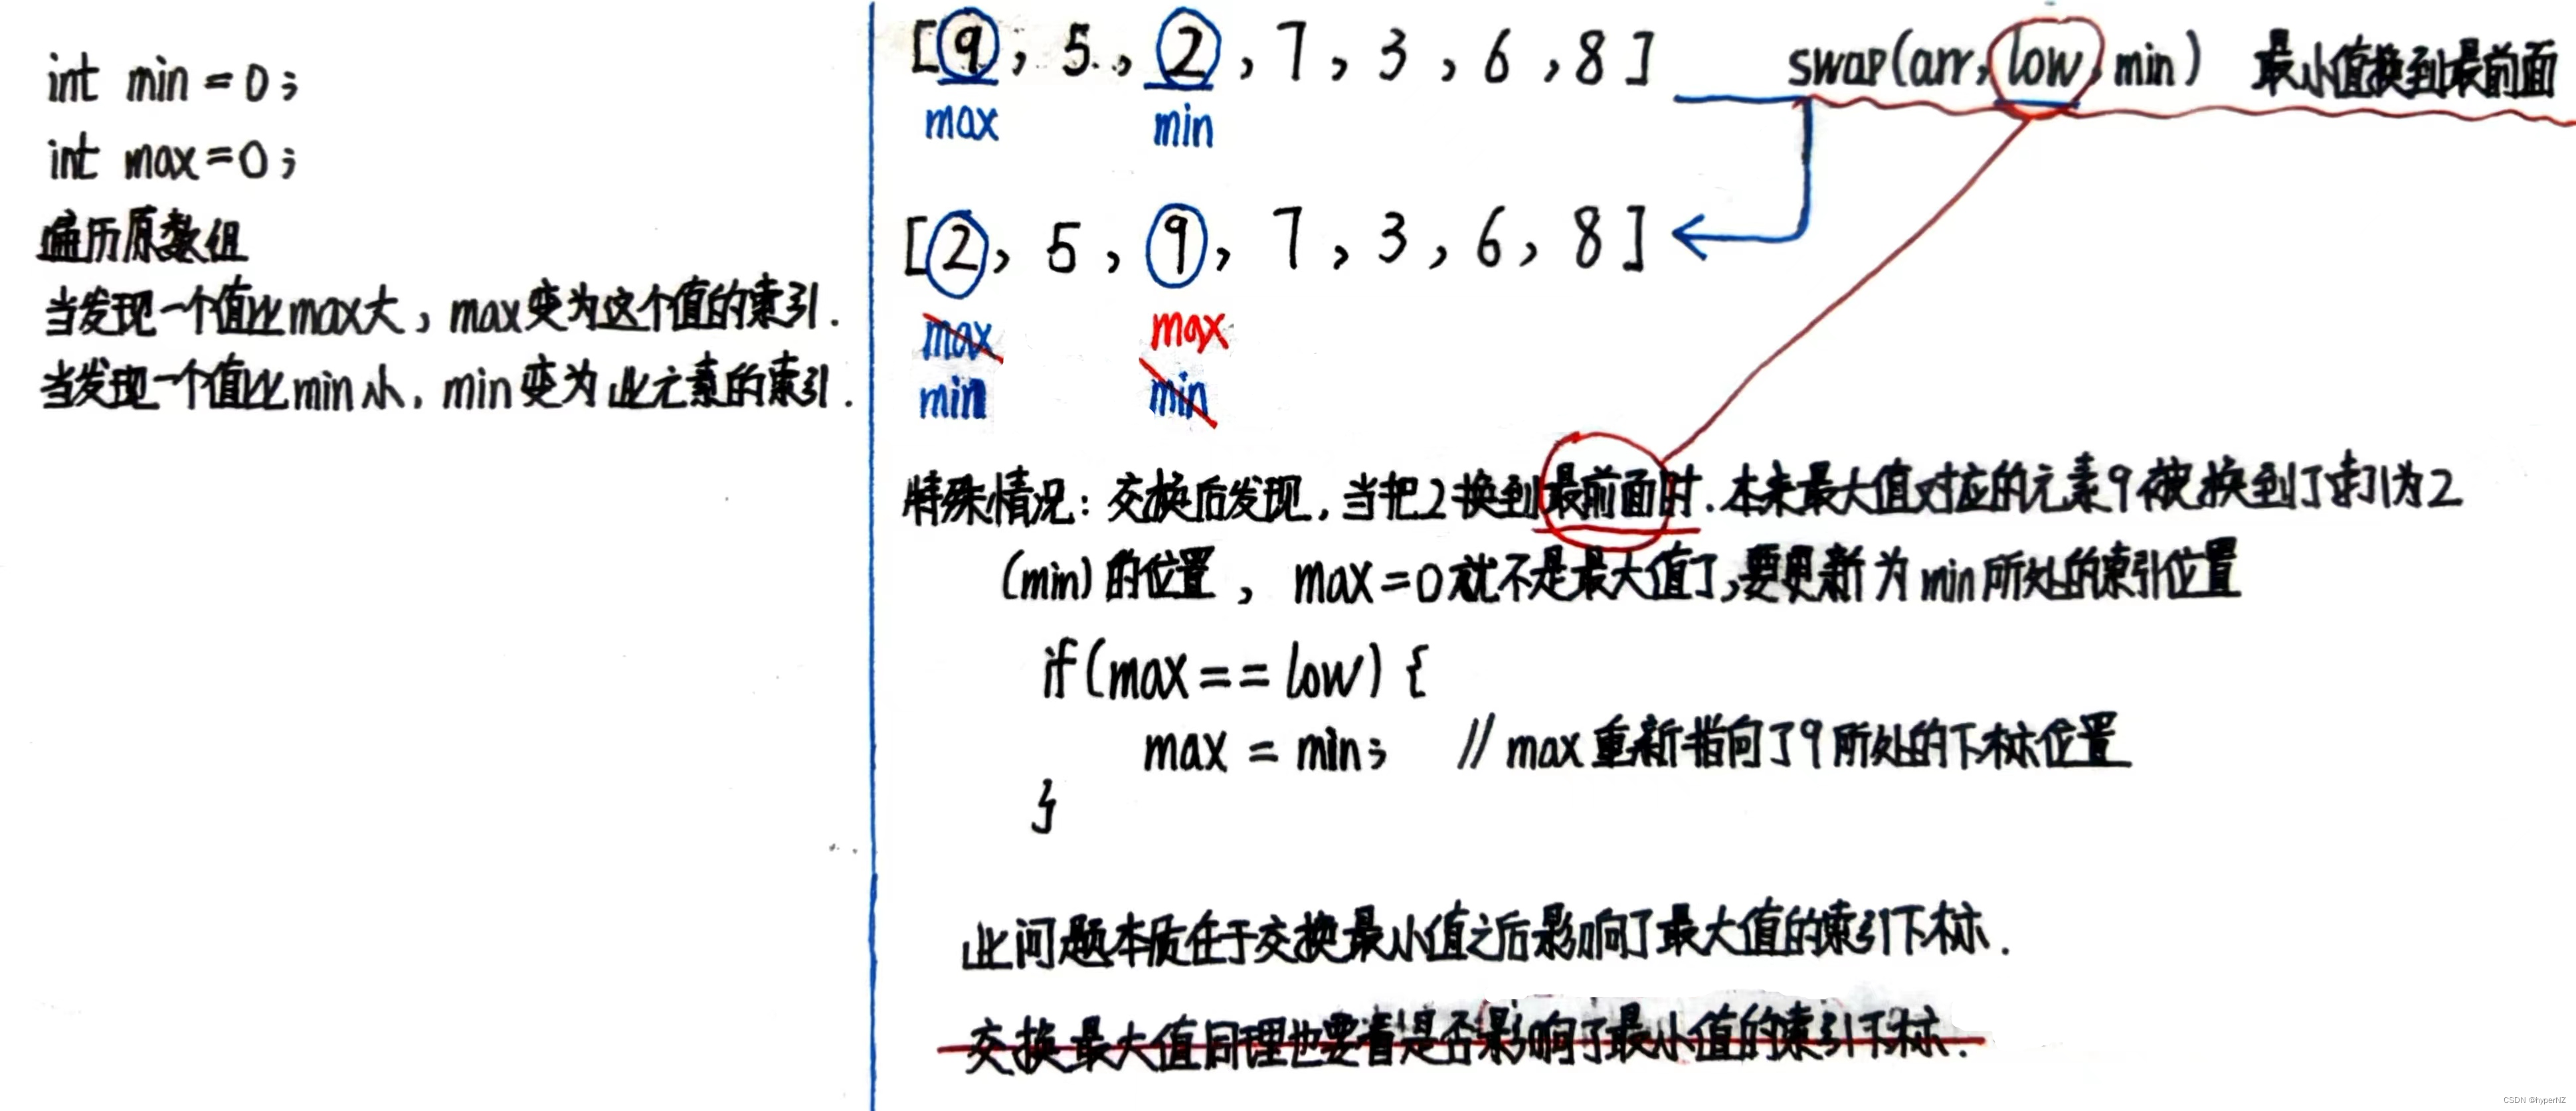 int min = 0;
int max = 0;
遍历原数组
当发现一个值比max大，max变为这个值的索引.
当发现一个值比min小，min变为此元素的索引.
[9, 5, 2, 7, 3, 6, 8]
max min
swap(arr, low, min) 最小值换到最前面
[2, 5, 9, 7, 3, 6, 8]
max max
min min
特殊情况：交换后发现，当把2换到最前面时.本来最大值对应的元素9被换到了索引为2
(min)的位置，max=0就不是最大值了,要更新为min所处的索引位置
if(max == low) {
max = min; // max重新指向了9所处的下标位置
}
此问题本质在于交换最小值之后影响了最大值的索引下标.
交换最大值同理也要看是否影响了最小值的索引下标.
CSDN @hyperNZ